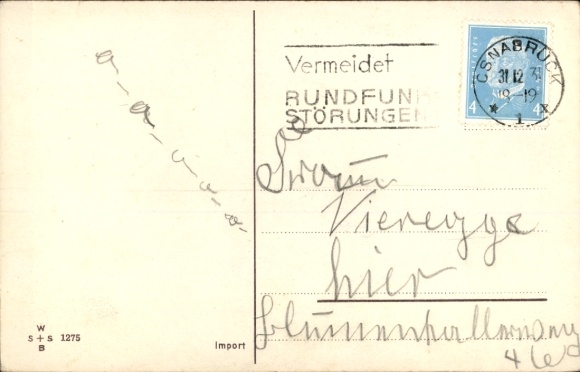 a - a - a - a - a -
Vermeidet
RUNDFUNK
STÖRUNGEN
OSNABRÜCK
31 12 31
18-19
* 1 x
4 4
Frau
Vieregge
hier
Blumenhallerweg
W
S + S 1275
B
Import